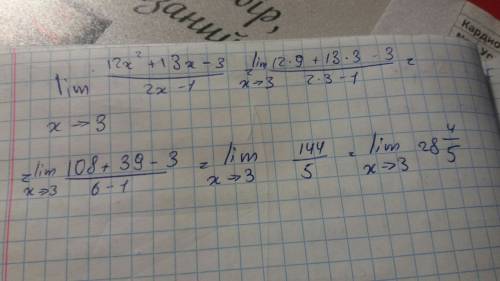 ыр,
заний
Кардио
№ уг
lim (12x² + 13x - 3)/(2x - 1) lim x→3 (12·9 + 13·3 - 3)/(2·3 - 1) =
x → 3
= lim x→3 (108 + 39 - 3)/(6 - 1) = lim x→3 144/5 = lim x→3 28 4/5